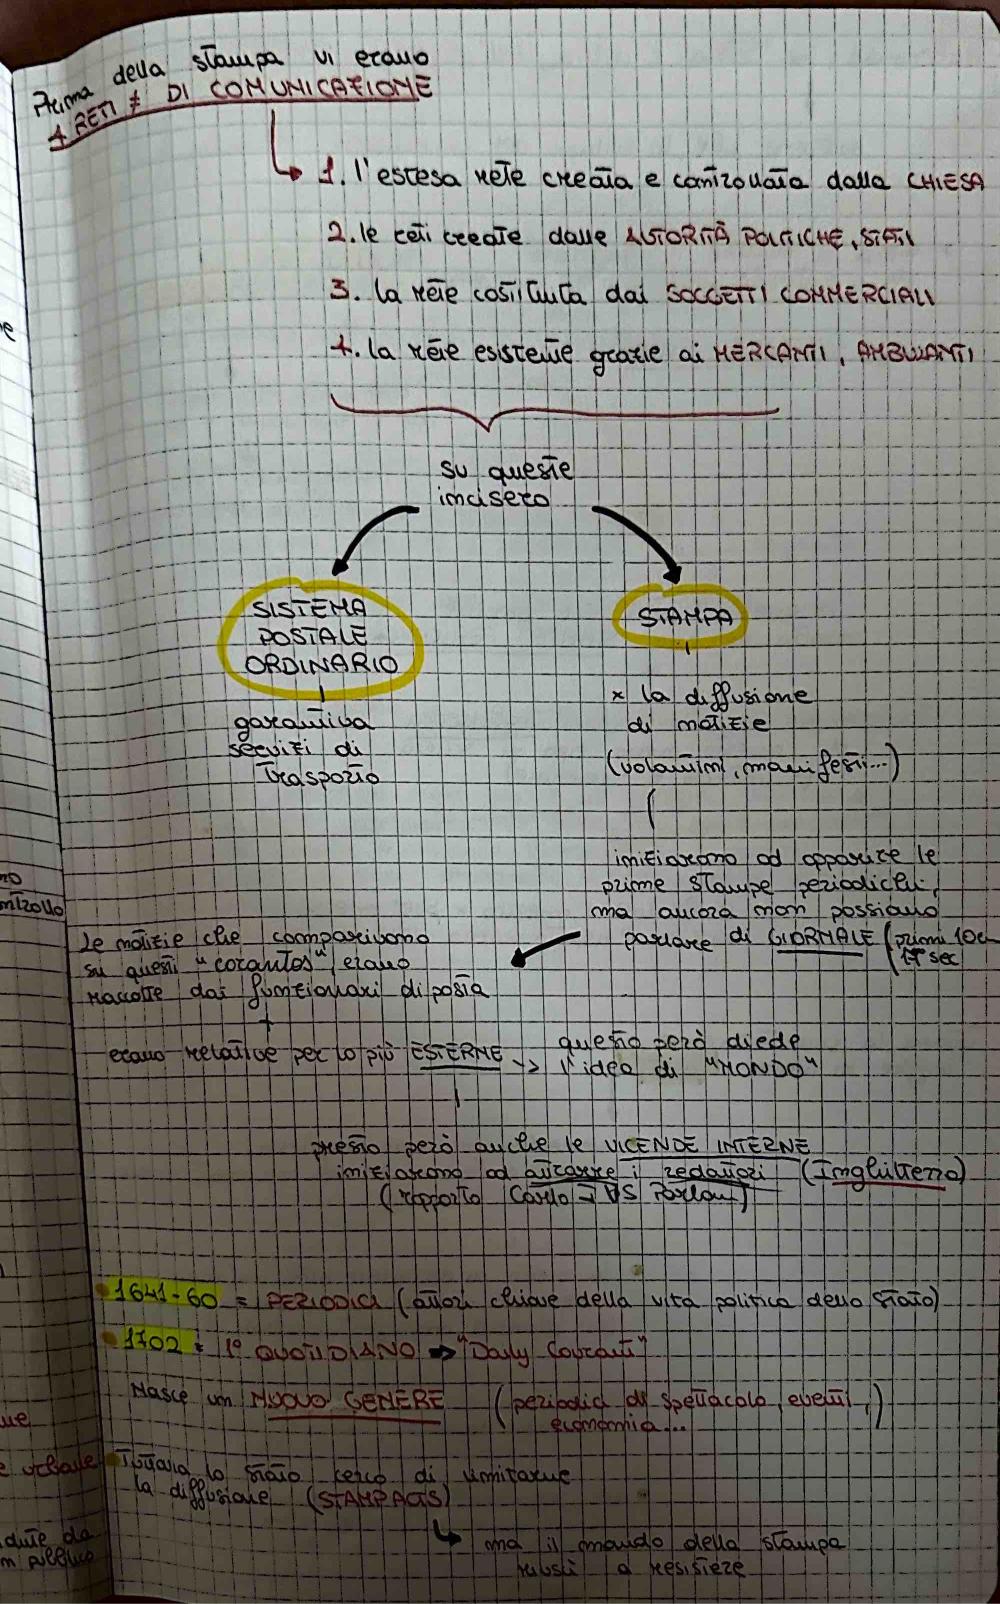 Prima della stampa vi erano
4 RETI ≠ DI COMUNICAZIONE
1. l'estesa rete creata e controllata dalla CHIESA
2. le reti create dalle AUTORITÀ POLITICHE, STATI
3. la rete costituita dai SOGGETTI COMMERCIALI
4. la rete esistente grazie ai MERCANTI, AMBULANTI
su queste
incisero
SISTEMA
POSTALE
ORDINARIO
garantiva
servizi di
trasporto
STAMPA
x la diffusione
di notizie
(volantini, manifesti...)
iniziarono ad apparire le
prime stampe periodiche,
ma ancora non possiamo
parlare di GIORNALE (primi 10enni
17 sec
Le notizie che comparivano
su questi "corantos" erano
raccolte dai funzionari di posta
+
erano relative per lo più ESTERNE ->
questo però diede
l'idea di "MONDO"
presto però anche le VICENDE INTERNE
iniziarono ad attrarre i redattori (Inghilterra)
(rapporto Carlo I VS Parlam)
1641-60 = PERIODICI (attori chiave della vita politica dello stato)
1702 = 1° QUOTIDIANO → "Daily Courant"
Nasce un NUOVO GENERE (periodici di spettacolo, eventi,
economia...)
Tuttavia lo stato cercò di limitarne
la diffusione (STAMP ACTS)
ma il mondo della stampa
riuscì a resistere
ntrollo
ue
e urbane
dute da
n pubblico